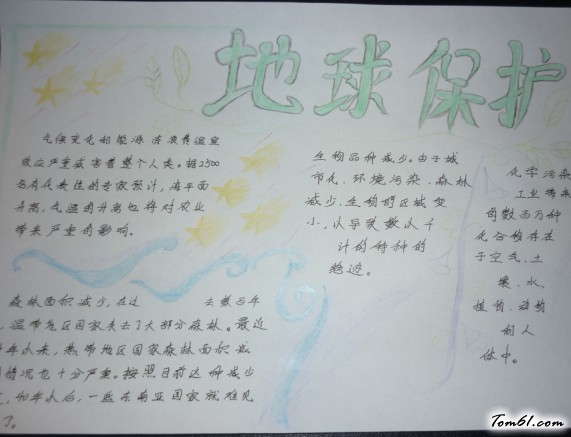 地球保护
气候变化和能源浪费温室
效应严重威害着整个人类。据2500
名有代表性的专家预计，海平面
升高，气温的升高也将对农业
带来严重的影响。
生物品种减少。由于城
市化、环境污染、森林
减少，生物的区域变
小，以导致数以千
计的特种的
绝迹。
化学污染
工业带来
的数百万种
化合物存在
于空气、土
壤、水、
植物、动物
和人
体中。
森林面积减少，在过去数百年
，温带地区国家失去了大部分森林。最近
年以来，热带地区国家森林面积减
情况也十分严重。按照目前这种减少
，40年以后，一些东南亚国家就难见
了。
Tom61.com